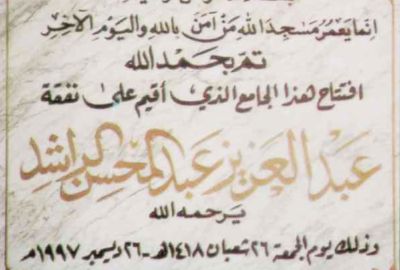 إنما يعمر مساجد الله من آمن بالله واليوم الآخر
تم بحمد الله
افتتاح هذا الجامع الذي أقيم على نفقة
عبد العزيز عبد المحسن الراشد
يرحمه الله
وذلك يوم الجمعة ٢٦ شعبان ١٤١٨هـ - ٢٦ ديسمبر ١٩٩٧م